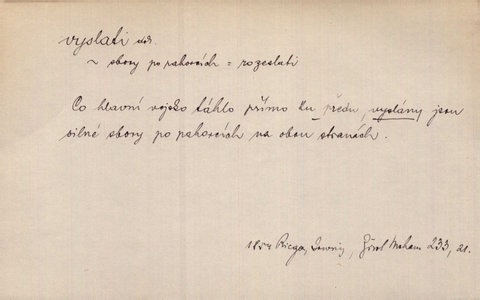 vyslati dok.
~ sbory po pahorcích = rozeslati
Co hlavní vojsko táhlo přímo ku předu, vyslány jsou
silné sbory po pahorcích na obou stranách.
Rieger, Život Moham 233, 21.